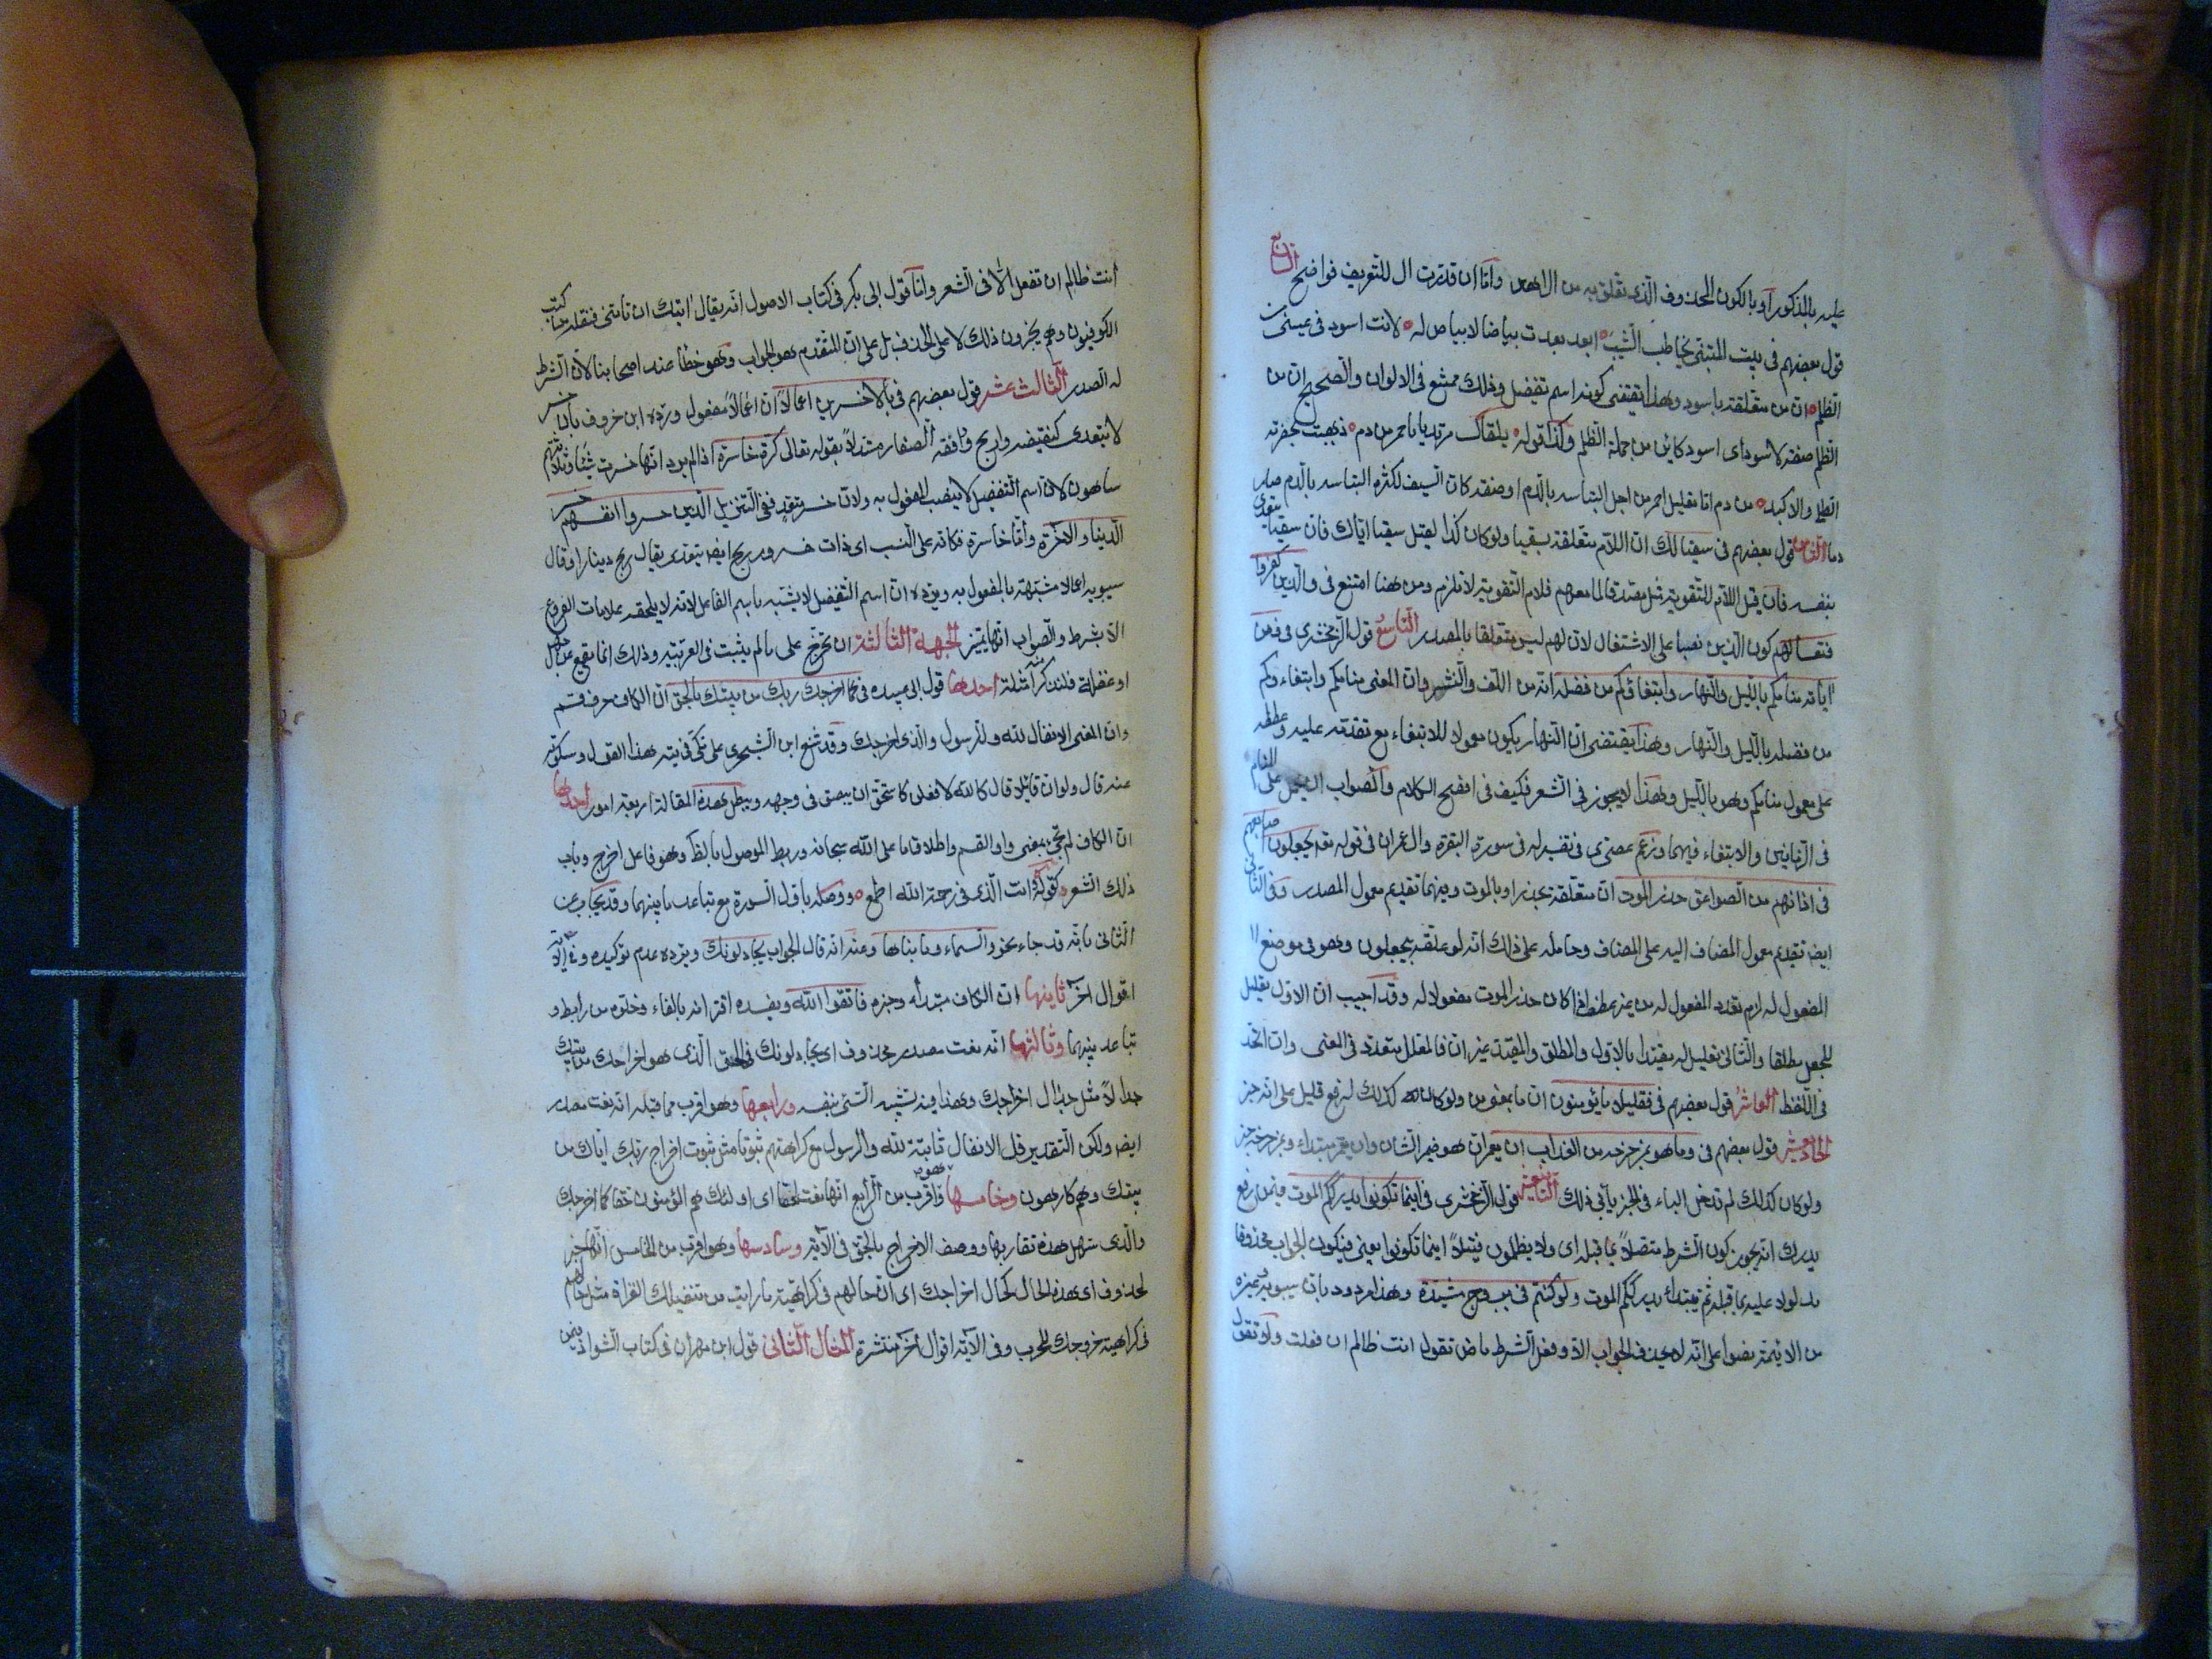 عليه بالمذكور او بالكون المحذوف الذى تعلق به من الزاهدين واما ان قدرت ال للتعريف فواضح السابع
قول بعضهم فى بيت المتنبى يخاطب الشيب ابعد بعدت بياضا لا بياض له لانت اسود فى عينى من
الظلم ان من متعلقة باسود وهذا يقتضى كونه اسم تفضيل وذلك ممتنع فى الالوان والصحيح ان من
الظلم صفة لاسود اى اسود كائن من جملة الظلم وكذا قوله يلقاك مرتديا باحمر من دم ذهبت بخضرته
الطلى والاكبد من دم اما تعليل احمر من اجل التباسه بالدم او صفة كان السيف لكثرة التباسه بالدم صار
دما الثامن قول بعضهم فى سقيا لك ان اللام متعلقة بسقيا ولو كان كذا لقيل سقيا اياك فان سقيا يتعدى
بنفسه فان قيل اللام للتقوية مثل مصدقا لما معهم فلام التقوية لا تلزم ومن هنا امتنع فى والذين كفروا
فتعسا لهم كون الذين نصبا على الاشتغال لان لهم ليس متعلقا بالمصدر التاسع قول الزمخشرى فى ومن
اياته منامكم بالليل والنهار وابتغاؤكم من فضله انه من اللف والنشر وان المعنى منامكم وابتغاءوكم
من فضله بالليل والنهار وهذا يقتضى ان النهار يكون معمولا للابتغاء مع تقدمه عليه وعطفه
على معمول منامكم وهو بالليل وهذا لا يجوز فى الشعر فكيف فى افصح الكلام والصواب ان يحمل على ان المنام
فى الزمانين والابتغاء فيهما وزعم عصرى فى تفسير له فى سورة البقرة وال عمران فى قوله تعه يجعلون اصابعهم
فى اذانهم من الصواعق حذر الموت ان من متعلقة بحذر او بالموت وفيهما تقديم معمول المصدر وفى الثانى
ايض تقديم معمول المضاف اليه على المضاف وحامله على ذلك انه لو علقه بيجعلون وهو فى موضع ا
المفعول له لزم تعدد المفعول له من غير عطف اذا كان حذر الموت مفعولا له وقد اجيب ان الاول تعليل
للجعل مطلقا والثانى تعليل له مقيدا بالاول والمطلق والمقيد غيران فالمعلل متعدد فى المعنى وان اتحد
فى اللفظ العاشر قول بعضهم فى فقليلا ما يؤمنون ان ما بمعنى من ولو كان كذلك لرفع قليل على انه خبر
الحاديعشر قول بعضهم فى وما هو بمزحزحه من العذاب ان يعمر ان هو ضمير الشان وان يعمر مبتداء وبمزحزحه خبر
ولو كان كذلك لم تدخل الباء فى الخبر يأبى ذلك الثانيعشر قول الزمخشرى فى اينما تكونوا يدرككم الموت فيمن رفع
يدرك انه يجوز كون الشرط متصلا بما قبله اى ولا يظلمون فتيلا اينما تكونوا يعنى فيكون الجواب محذوفا
مدلولا عليه بما قبله ثم يبتدأ يدرككم الموت ولو كنتم فى بروج مشيدة وهذا مردود بان سيبويه وغيره
من الائمة نصوا على انه لا يحذف الجواب الا وفعل الشرط ماض تقول انت ظالم ان فعلت ولا تقول
انت ظالم ان تفعل الا فى الشعر واما قول ابى بكر فى كتاب الاصول انه يقال اتيك ان تاتنى فنقله من كتب
الكوفيون وهم يجيزون ذلك لا على الحذف بل على ان المتقدم هو الجواب وهو خطأ عند اصحابنا لان الشرط
له الصدر الثالث عشر قول بعضهم فى بالاخسرين اعمالا ان اعمالا مفعول ورده ابن خروف بان خسر
لا يتعدى كنقيضه وربح ووافقه الصفار مستدلا بقوله تعالى كرة خاسرة اذ لم يرد انها خسرت شيئا وثلاثتهم
ساهون لان اسم التفضيل لا ينصب المفعول به ولان خسر متعد ففى التنزيل الذين خسروا انفسهم خسر
الدنيا والاخرة واما خاسرة فكانه على النسب اى ذات خسر وربح ايض يتعدى يقال ربح دينارا وقال
سيبويه اعمالا مشبهة بالمفعول به ويرده ان اسم التفضيل لا يشتبه باسم الفاعل لانه لا يلحقه علامات الفروع
الا بشرط والصواب انها تمييز الجهة الثالثة ان يخرج على ما لم يثبت فى العربية وذلك انما يقع عن جهل
او غفلة فلنذكر منه امثلة احدها قول ابى عبيدة فى كما اخرجك ربك من بيتك بالحق ان الكاف حرف قسم
وان المعنى الانفال لله والرسول والذى اخرجك وقد شنع ابن الشجرى على مكى فى حكايته هذا القول وسكوته
عنه قال ولو ان قائلا قال كالله لافعلن كا ستحق ان يبصق فى وجهه ويبطل هذه المقالة اربعة امور احدها
ان الكاف لم تجئ بمعنى واو القسم واطلاق ما على الله سبحانه وربط الموصول بالظ وهو فاعل اخرج وباب
ذلك الشعر كقوله وانت الذى فى رحمة الله اطمع ووصله باول السورة مع تباعد ما بينهما وقد يجاب عن
الثانى بانه قد جاء نحو والسماء وما بناها وعنه انه قال الجواب يجادلونك ويرده عدم توكيده وفى الاية
اقوال اخر ثانيها ان الكاف مبتدأه وخبره فاتقوا الله ويفسده اقترانه بالفاء وخلوه من رابط و
تباعد بينهما وثالثها انه نعت مصدر محذوف اى يجادلونك فى الحق الذى هو اخراجك من بيتك
جدالا مثل جدال اخراجك وهذا فيه تشبيه الشئ بنفسه ورابعها وهو اقرب مما قبله انه نعت مصدر
ايض ولكن التقدير قل الانفال ثابتة لله والرسول مع كراهتهم ثبوتا مثل ثبوت اخراج ربك اياك من
بيتك وهم كارهون وخامسها وهو اقرب من الرابع انها نعت لحقا اى اولئك هم المؤمنون حقا كما اخرجك
والذى سهل هذه تقاربها ووصف الاخراج بالحق فى الاية وسادسها وهو اقرب من الخامس انها خبر
لمحذوف اى هذه الحال كحال اخراجك اى ان حالهم فى كراهية ما رايت من تنفيلك الغزاة مثل حالهم
فى كراهية خروجك للحرب وفى الاية اقوال اخر منتشرة المثال الثانى قول ابن مهران فى كتاب الشواذ فيمن